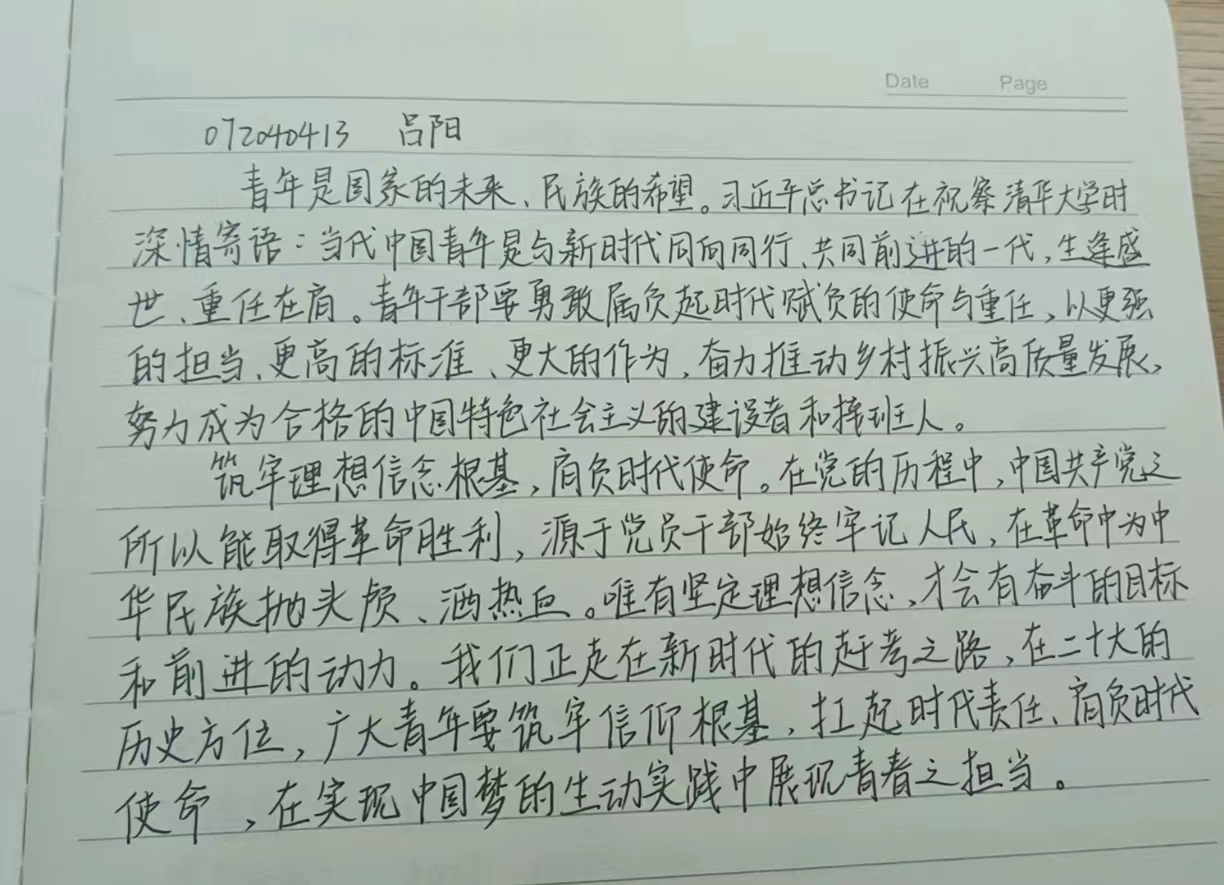 Date Page
072040413 吕阳
青年是国家的未来、民族的希望。习近平总书记在视察清华大学时
深情寄语：当代中国青年是与新时代同向同行、共同前进的一代，生逢盛
世、重任在肩。青年干部要勇敢属负起时代赋负的使命与重任，以更强
的担当、更高的标准、更大的作为，奋力推动乡村振兴高质量发展，
努力成为合格的中国特色社会主义的建设者和接班人。
筑牢理想信念根基，肩负时代使命。在党的历程中，中国共产党之
所以能取得革命胜利，源于党员干部始终牢记人民，在革命中为中
华民族抛头颅、洒热血。唯有坚定理想信念，才会有奋斗的目标
和前进的动力。我们正走在新时代的赶考之路，在二十大的
历史方位，广大青年要筑牢信仰根基，扛起时代责任、肩负时代
使命，在实现中国梦的生动实践中展现青春之担当。